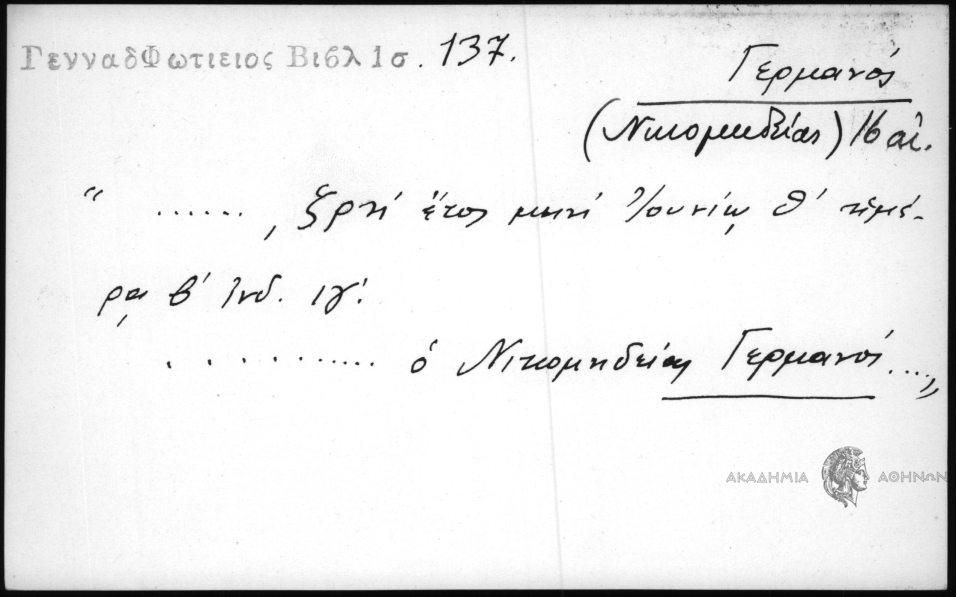 ΓενναδΦωτιειος Βιβλ 1σ. 137.
Γερμανός
(Νικομηδείας) 16 αἰ.
“ ......, ζρκή ἔτος μηνί Ἰουνίῳ θ′ ἡμέ-
ρᾳ β′ Ἰνδ. ιγ′.
.......... ὁ Νικομηδείας Γερμανός ....„
ΑΚΑΔΗΜΙΑ ΑΘΗΝΩΝ